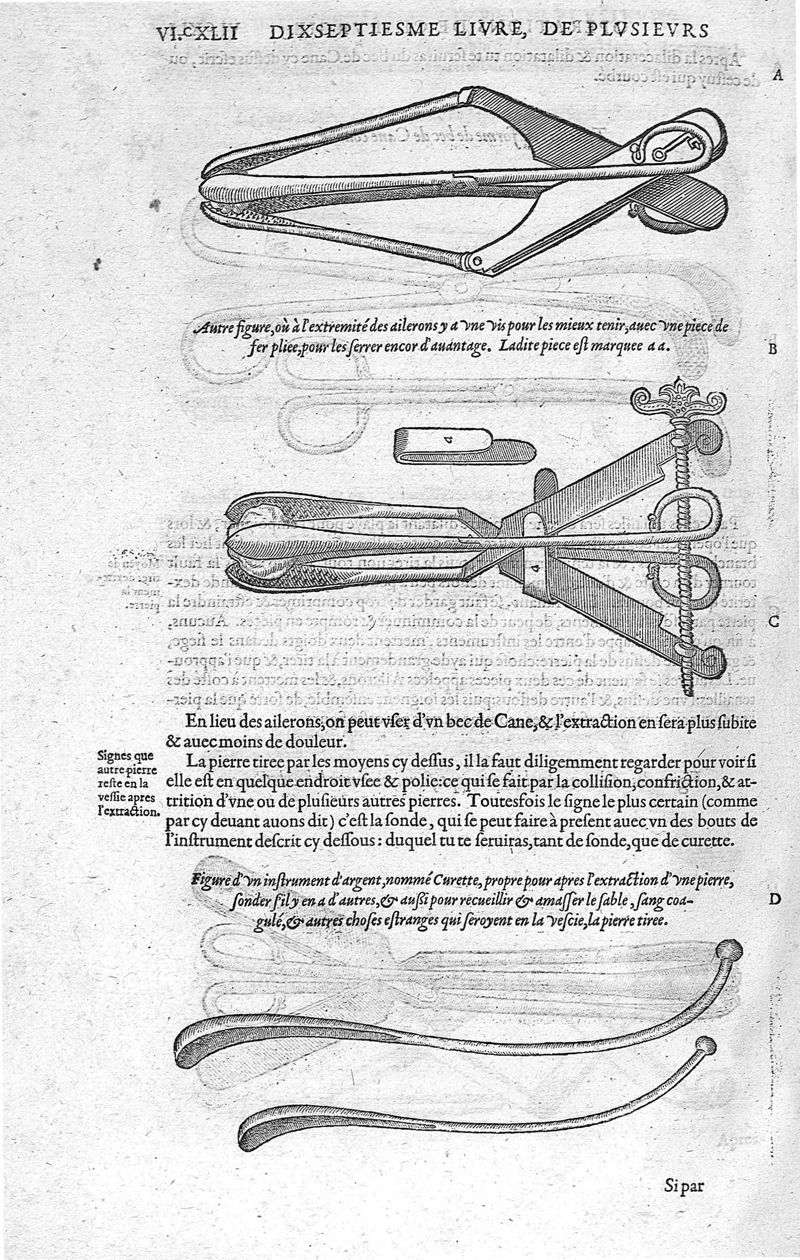 VI.CXLII DIXSEPTIESME LIVRE, DE PLVSIEVRS
A
Autre figure, où à l'extremité des ailerons y a vne vis pour les mieux tenir, auec vne piece de
fer pliee, pour les serrer encor d'auantage. Ladite piece est marquee a a.
B
a
a
C
En lieu des ailerons, on peut vser d'vn bec de Cane, & l'extraction en sera plus subite
& auec moins de douleur.
Signes que
autre pierre
reste en la
vessie apres
l'extraction.
La pierre tiree par les moyens cy dessus, il la faut diligemment regarder pour voir si
elle est en quelque endroit vsee & polie: ce qui se fait par la collision, confriction, & at-
trition d'vne ou de plusieurs autres pierres. Toutesfois le signe le plus certain (comme
par cy deuant auons dit) c'est la sonde, qui se peut faire à present auec vn des bouts de
l'instrument descrit cy dessous: duquel tu te seruiras, tant de sonde, que de curette.
Figure d'vn instrument d'argent, nommé Curette, propre pour apres l'extraction d'vne pierre,
sonder s'il y en a d'autres, & aussi pour recueillir & amasser le sable, sang coa-
gulé, & autres choses estranges qui seroyent en la vescie, la pierre tiree.
D
Si par